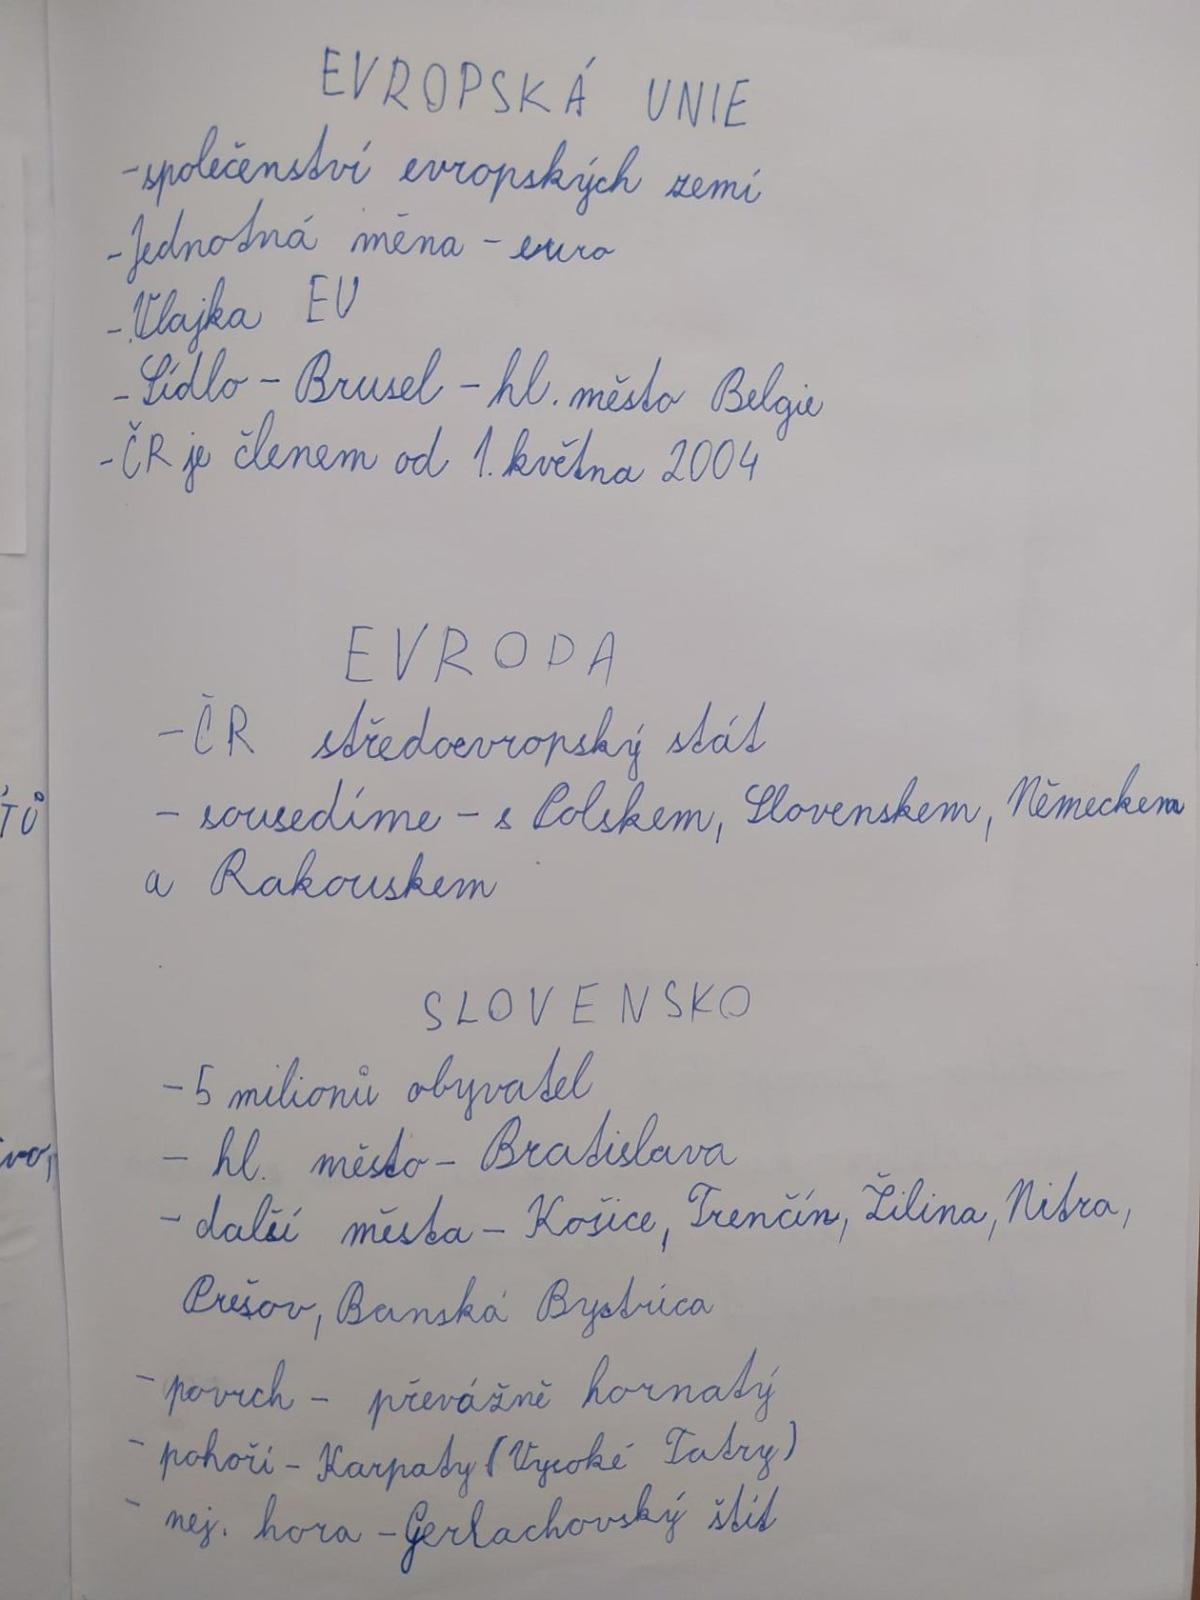 EVROPSKÁ UNIE
- společenství evropských zemí
- Jednotná měna - euro
- Vlajka EU
- Sídlo - Brusel - hl. město Belgie
- ČR je členem od 1. května 2004
EVROPA
- ČR středoevropský stát
- sousedíme - s Polskem, Slovenskem, Německem
a Rakouskem
SLOVENSKO
- 5 milionů obyvatel
- hl. město - Bratislava
- další města - Košice, Trenčín, Žilina, Nitra,
Prešov, Banská Bystrica
- povrch - převážně hornatý
- pohoří - Karpaty (Vysoké Tatry)
- nej. hora - Gerlachovský štít